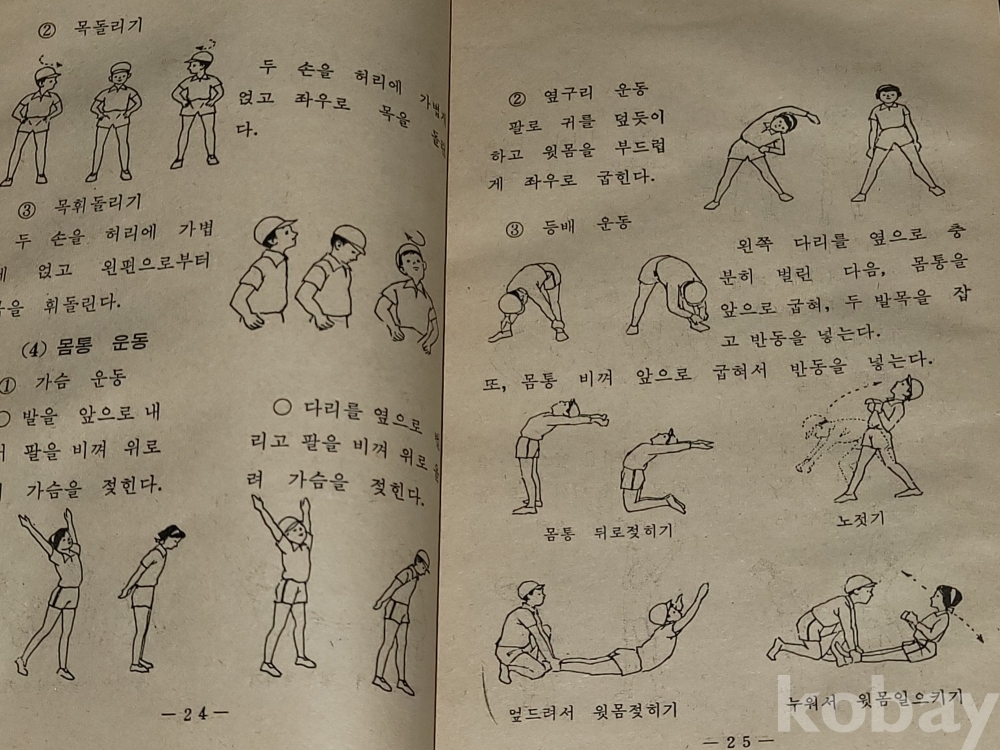 ② 목돌리기
두 손을 허리에 가볍게
얹고 좌우로 목을
다.
③ 목휘돌리기
두 손을 허리에 가볍
게 얹고 왼편으로부터
목을 휘돌린다.
(4) 몸통 운동
① 가슴 운동
○ 발을 앞으로 내
팔을 비껴 위로
가슴을 젖힌다.
○ 다리를 옆으로
리고 팔을 비껴 위로
려 가슴을 젖힌다.
—24—
② 옆구리 운동
팔로 귀를 덮듯이
하고 윗몸을 부드럽
게 좌우로 굽힌다.
③ 등배 운동
왼쪽 다리를 옆으로 충
분히 벌린 다음, 몸통을
앞으로 굽혀, 두 발목을 잡
고 반동을 넣는다.
또, 몸통 비껴 앞으로 굽혀서 반동을 넣는다.
몸통 뒤로젖히기
노젓기
엎드려서 윗몸젖히기
누워서 윗몸일으키기
—25—
kobay